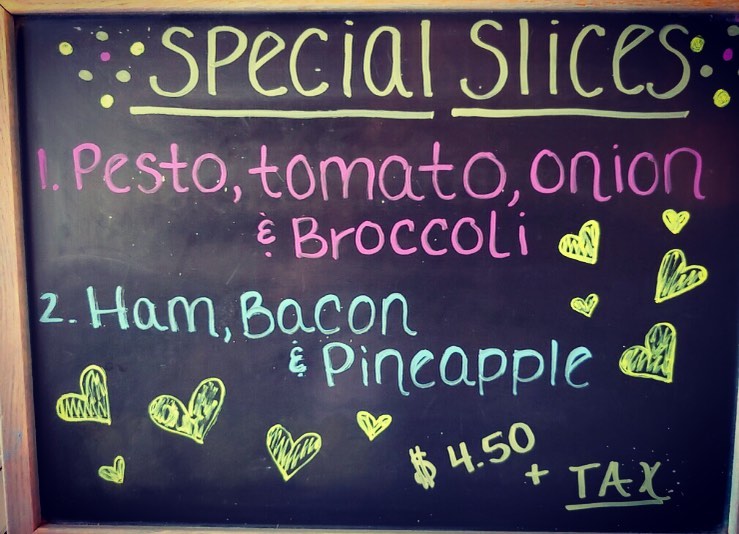 Special Slices
1. Pesto, tomato, onion
& Broccoli
2. Ham, Bacon
& Pineapple
$4.50
+ TAX